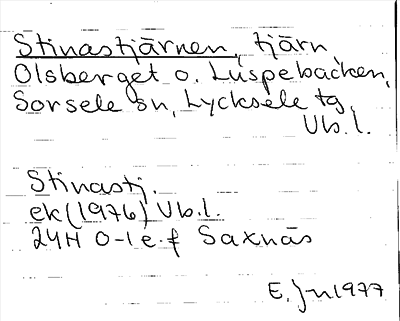 Stinastjärnen, tjärn
Olsberget o. Luspebacken,
Sorsele sn, Lycksele tg.
Vb.l.
Stinastj.
ek (1976) Vb.l.
24H 0-1 e.f Saxnäs
E. Jn 1977